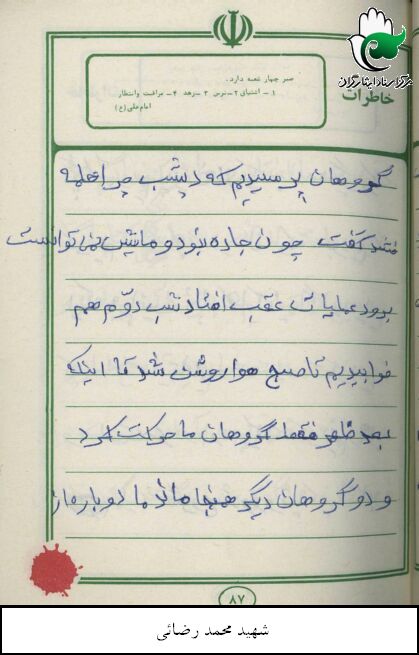 مرکز اسناد ایثارگران
خاطرات
صبر چهار شعبه دارد.
۱ـ اشتیاق ۲ـ ترس ۳ـ زهد ۴ـ مراقبت وانتظار
امام علی (ع)
گروهان پرسیدیم که دیشب چرا حمله
نشد گفت چون جاده نبود و ماشین نمی توانست
برود عملیات عقب افتاد شب دوم هم
خوابیدیم تا صبح هوا روشن شد تا اینکه
بعد ظهر فقط گروهان ما حرکت کرد
و دو گروهان دیگر همنجا ماند ما دوباره از
۸۷
شهید محمد رضائی